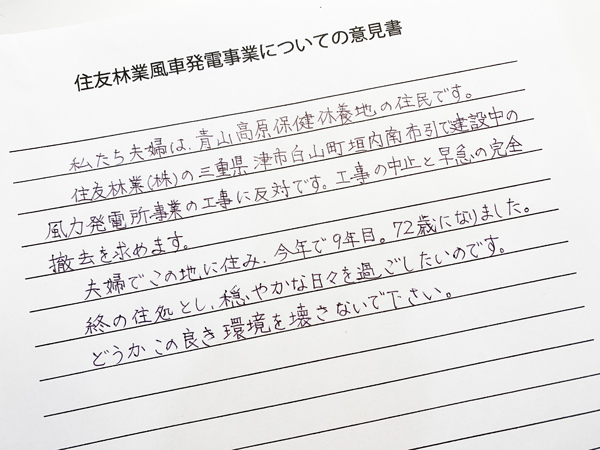 住友林業風車発電事業についての意見書
私たち夫婦は、青山高原保健休養地の住民です。
住友林業(株)の三重県津市白山町垣内南布引で建設中の
風力発電所事業の工事に反対です。工事の中止と早急の完全
撤去を求めます。
夫婦でこの地に住み、今年で9年目。72歳になりました。
終の住処とし、穏やかな日々を過ごしたいのです。
どうかこの良き環境を壊さないで下さい。